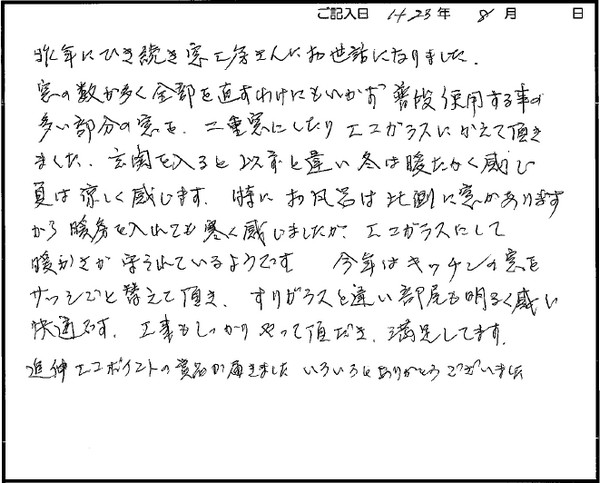 ご記入日 H23年 8月 日
昨年にひき続き窓工房さんにお世話になりました。
窓の数が多く全部を直すわけにもいかず 普段使用する事の
多い部分の窓を、二重窓にしたりエコガラスにかえて頂き
ました。玄関を入ると以前と違い冬は暖たかく感じ
夏は涼しく感じます。特にお風呂は北側に窓があります
から暖房を入れても寒く感じましたが、エコガラスにして
暖かさが守られているようです 今年はキッチンの窓を
サッシごと替えて頂き、すりガラスと違い部屋も明るく感じ
快適です。工事もしっかりやって頂だき、満足してます。
追伸 エコポイントの賞品が届きました いろいろとありがとうございました